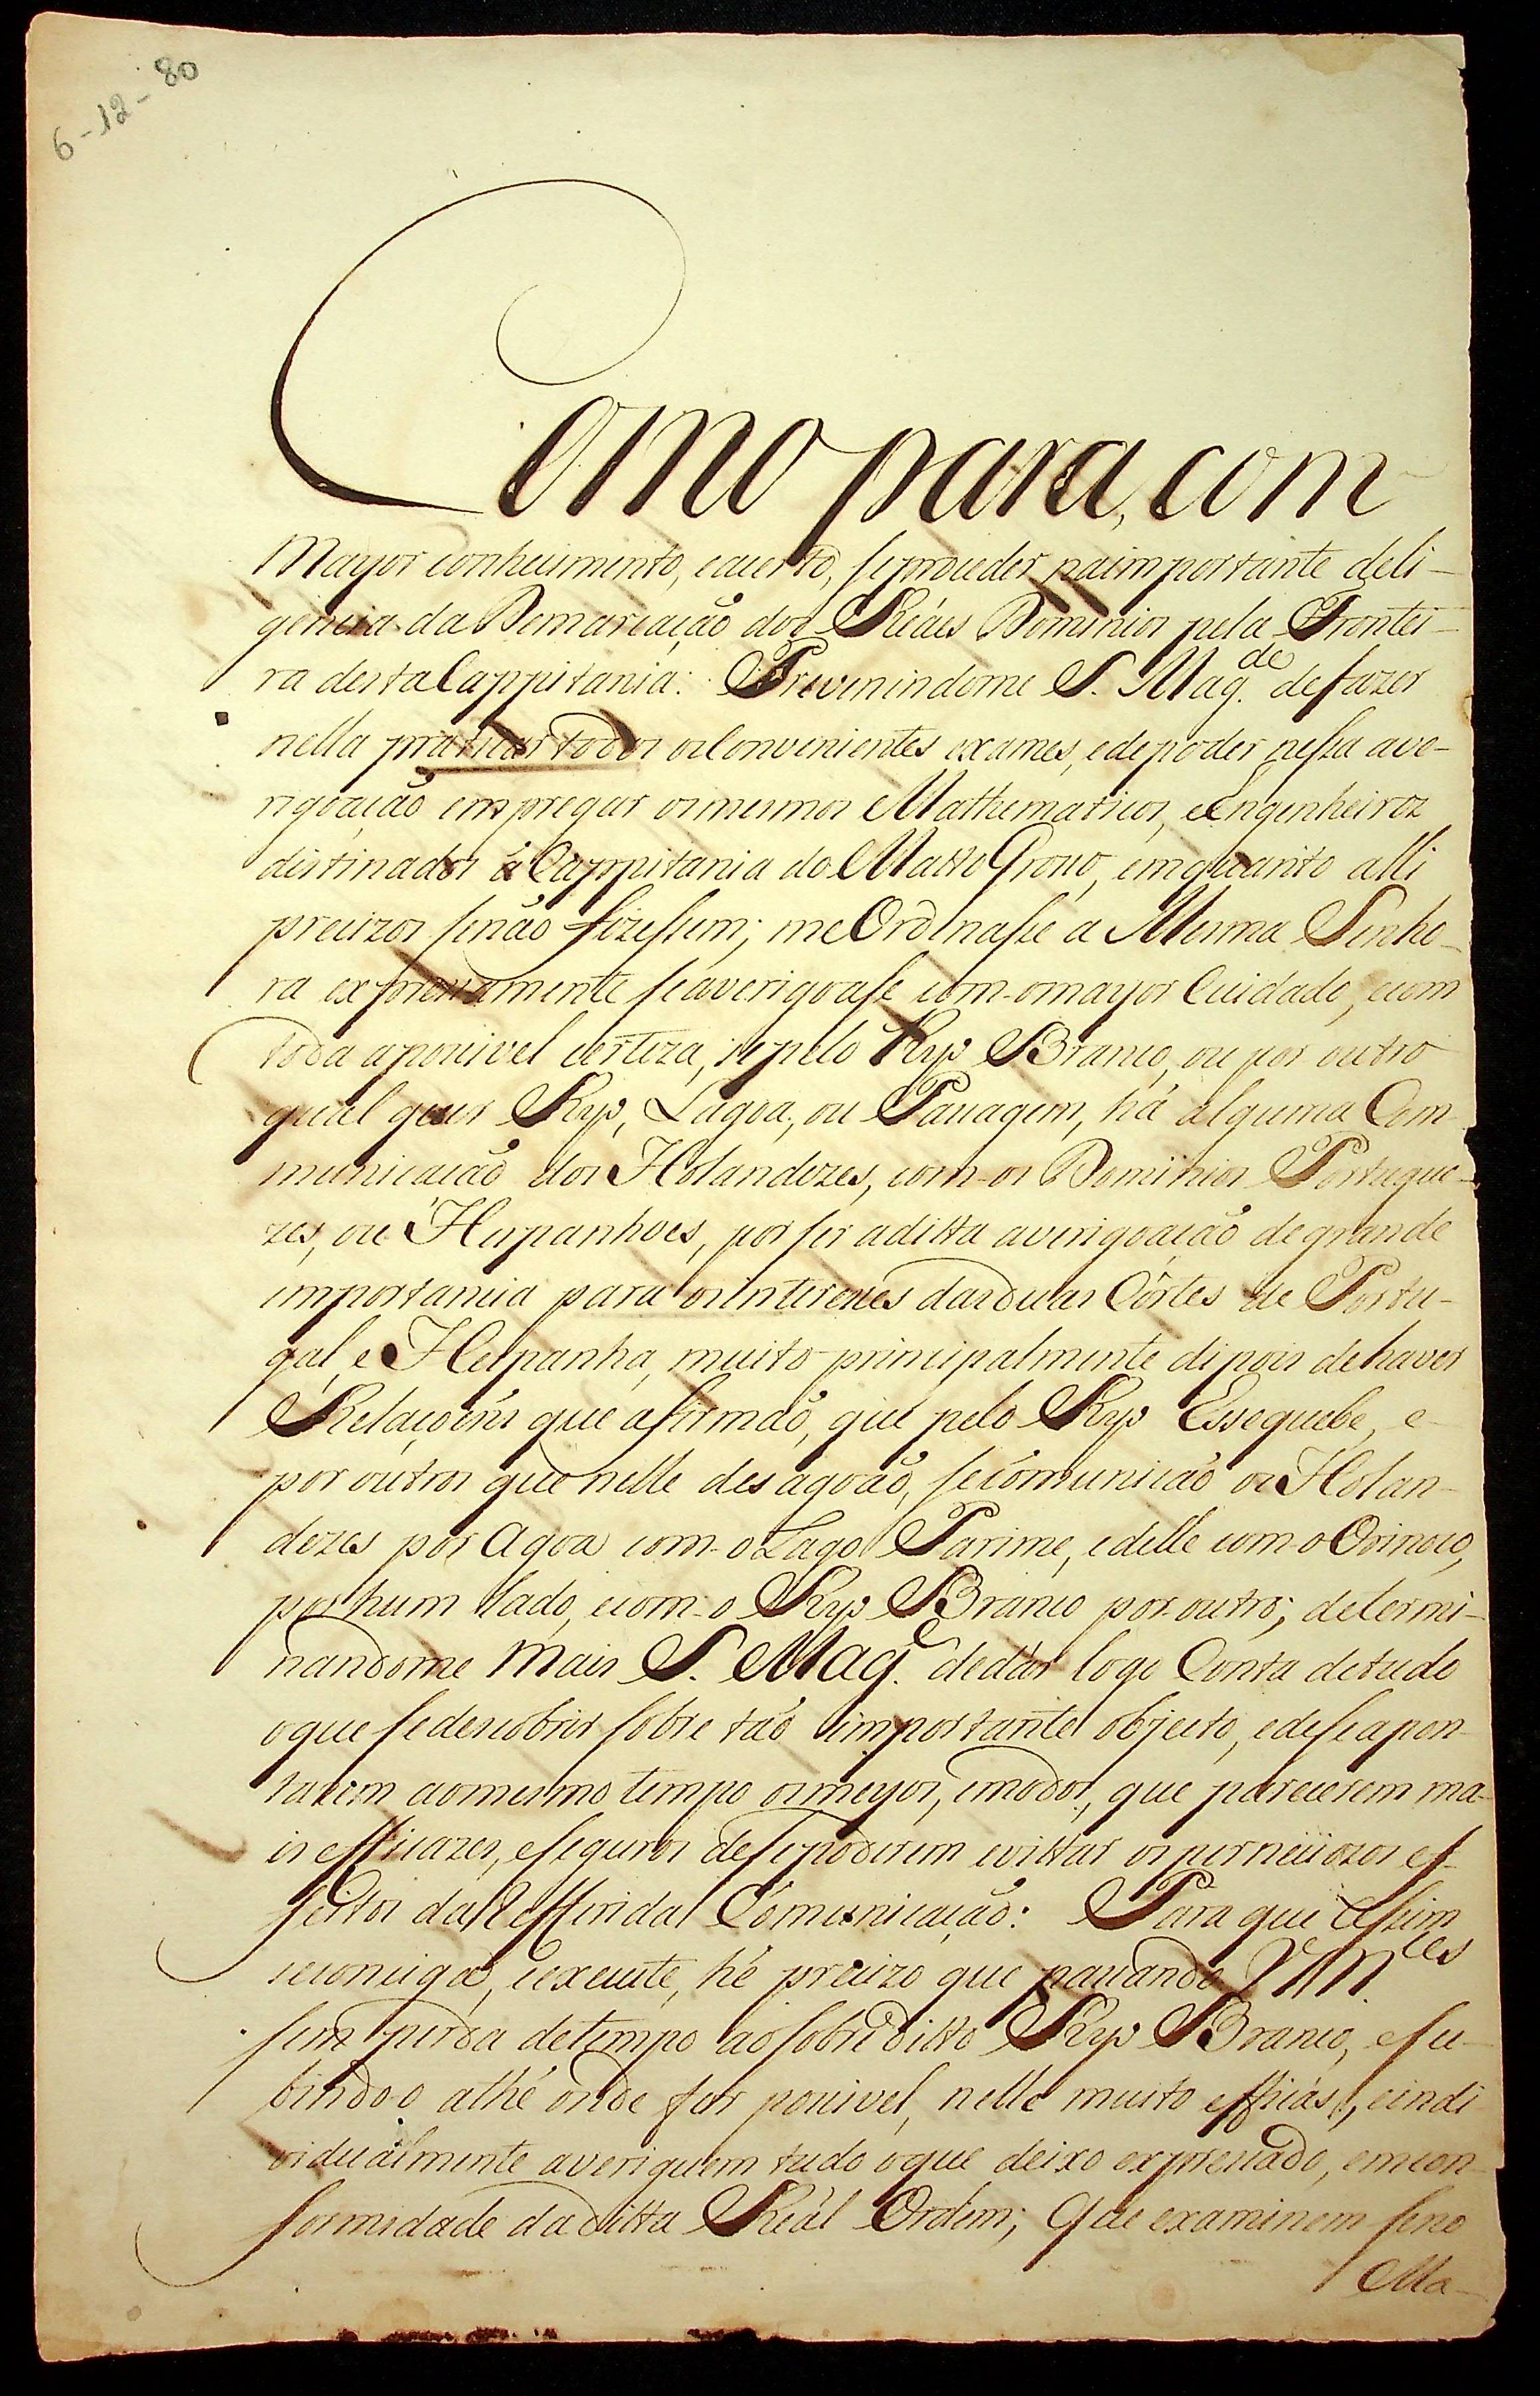 6-12-80
Como para, com
Mayor conhecimento, e acerto, se proceder na importante deli-
gencia da Demarcação dos Reáes Dominios pela Frontei-
ra desta Cappitania: Prevenindome S. Mag.de de fazer
nella praticar todos os Convenientes exames, e de poder nessa ave-
rigoação empregar os mesmos Mathematicos, e Engenheiroz
distinados á Cappitania do Matto Groso, emquanto alli
precizos se não fizessem; me Ordenasse a Mesma Senho-
ra expressamente se averigoase com o mayor Cuidado, e com
toda a posivel certeza, se pelo Ryo Branco, ou por outro
qual quer Ryo, Lagoa, ou Passagem, há alguma Com-
municação dos Holandezes, com os Dominios Portugue-
zes, ou Hespanhoes, por ser a ditta averigoação de grande
importancia para os interesses das duas Côrtes de Portu-
gal, e Hespanha, muito principalmente dipois de haver
Relaçoens que afirmão, que pelo Ryo Essequebe, e
por outros que nelle desagoão, se comunicão os Holan-
dezes por Agoa com o Lago Parime, e delle com o Orinoco,
por hum lado, e com o Ryo Branco por outro; determi-
nandome mais S. Mag.e de dár logo Conta de tudo
o que se descobrir sobre tão importante objecto, e de se apon-
tarem ao mesmo tempo os meyos, e modos, que parecerem ma-
is efficazes, e seguros de se poderem evittar os perneciozos ef-
feitos da Refferida Cómunicação: Para que assim
se consiga, e execute, hé precizo que passando VMces
sem perda de tempo ao sobreditto Ryo Branco, e su-
bindo o athé onde for posivel, nelle muito efficás, e indi-
vidualmente averiguem tudo o que deixo expressado, em con-
formidade da ditta Reál Ordem; Que examinem se no
Ma-